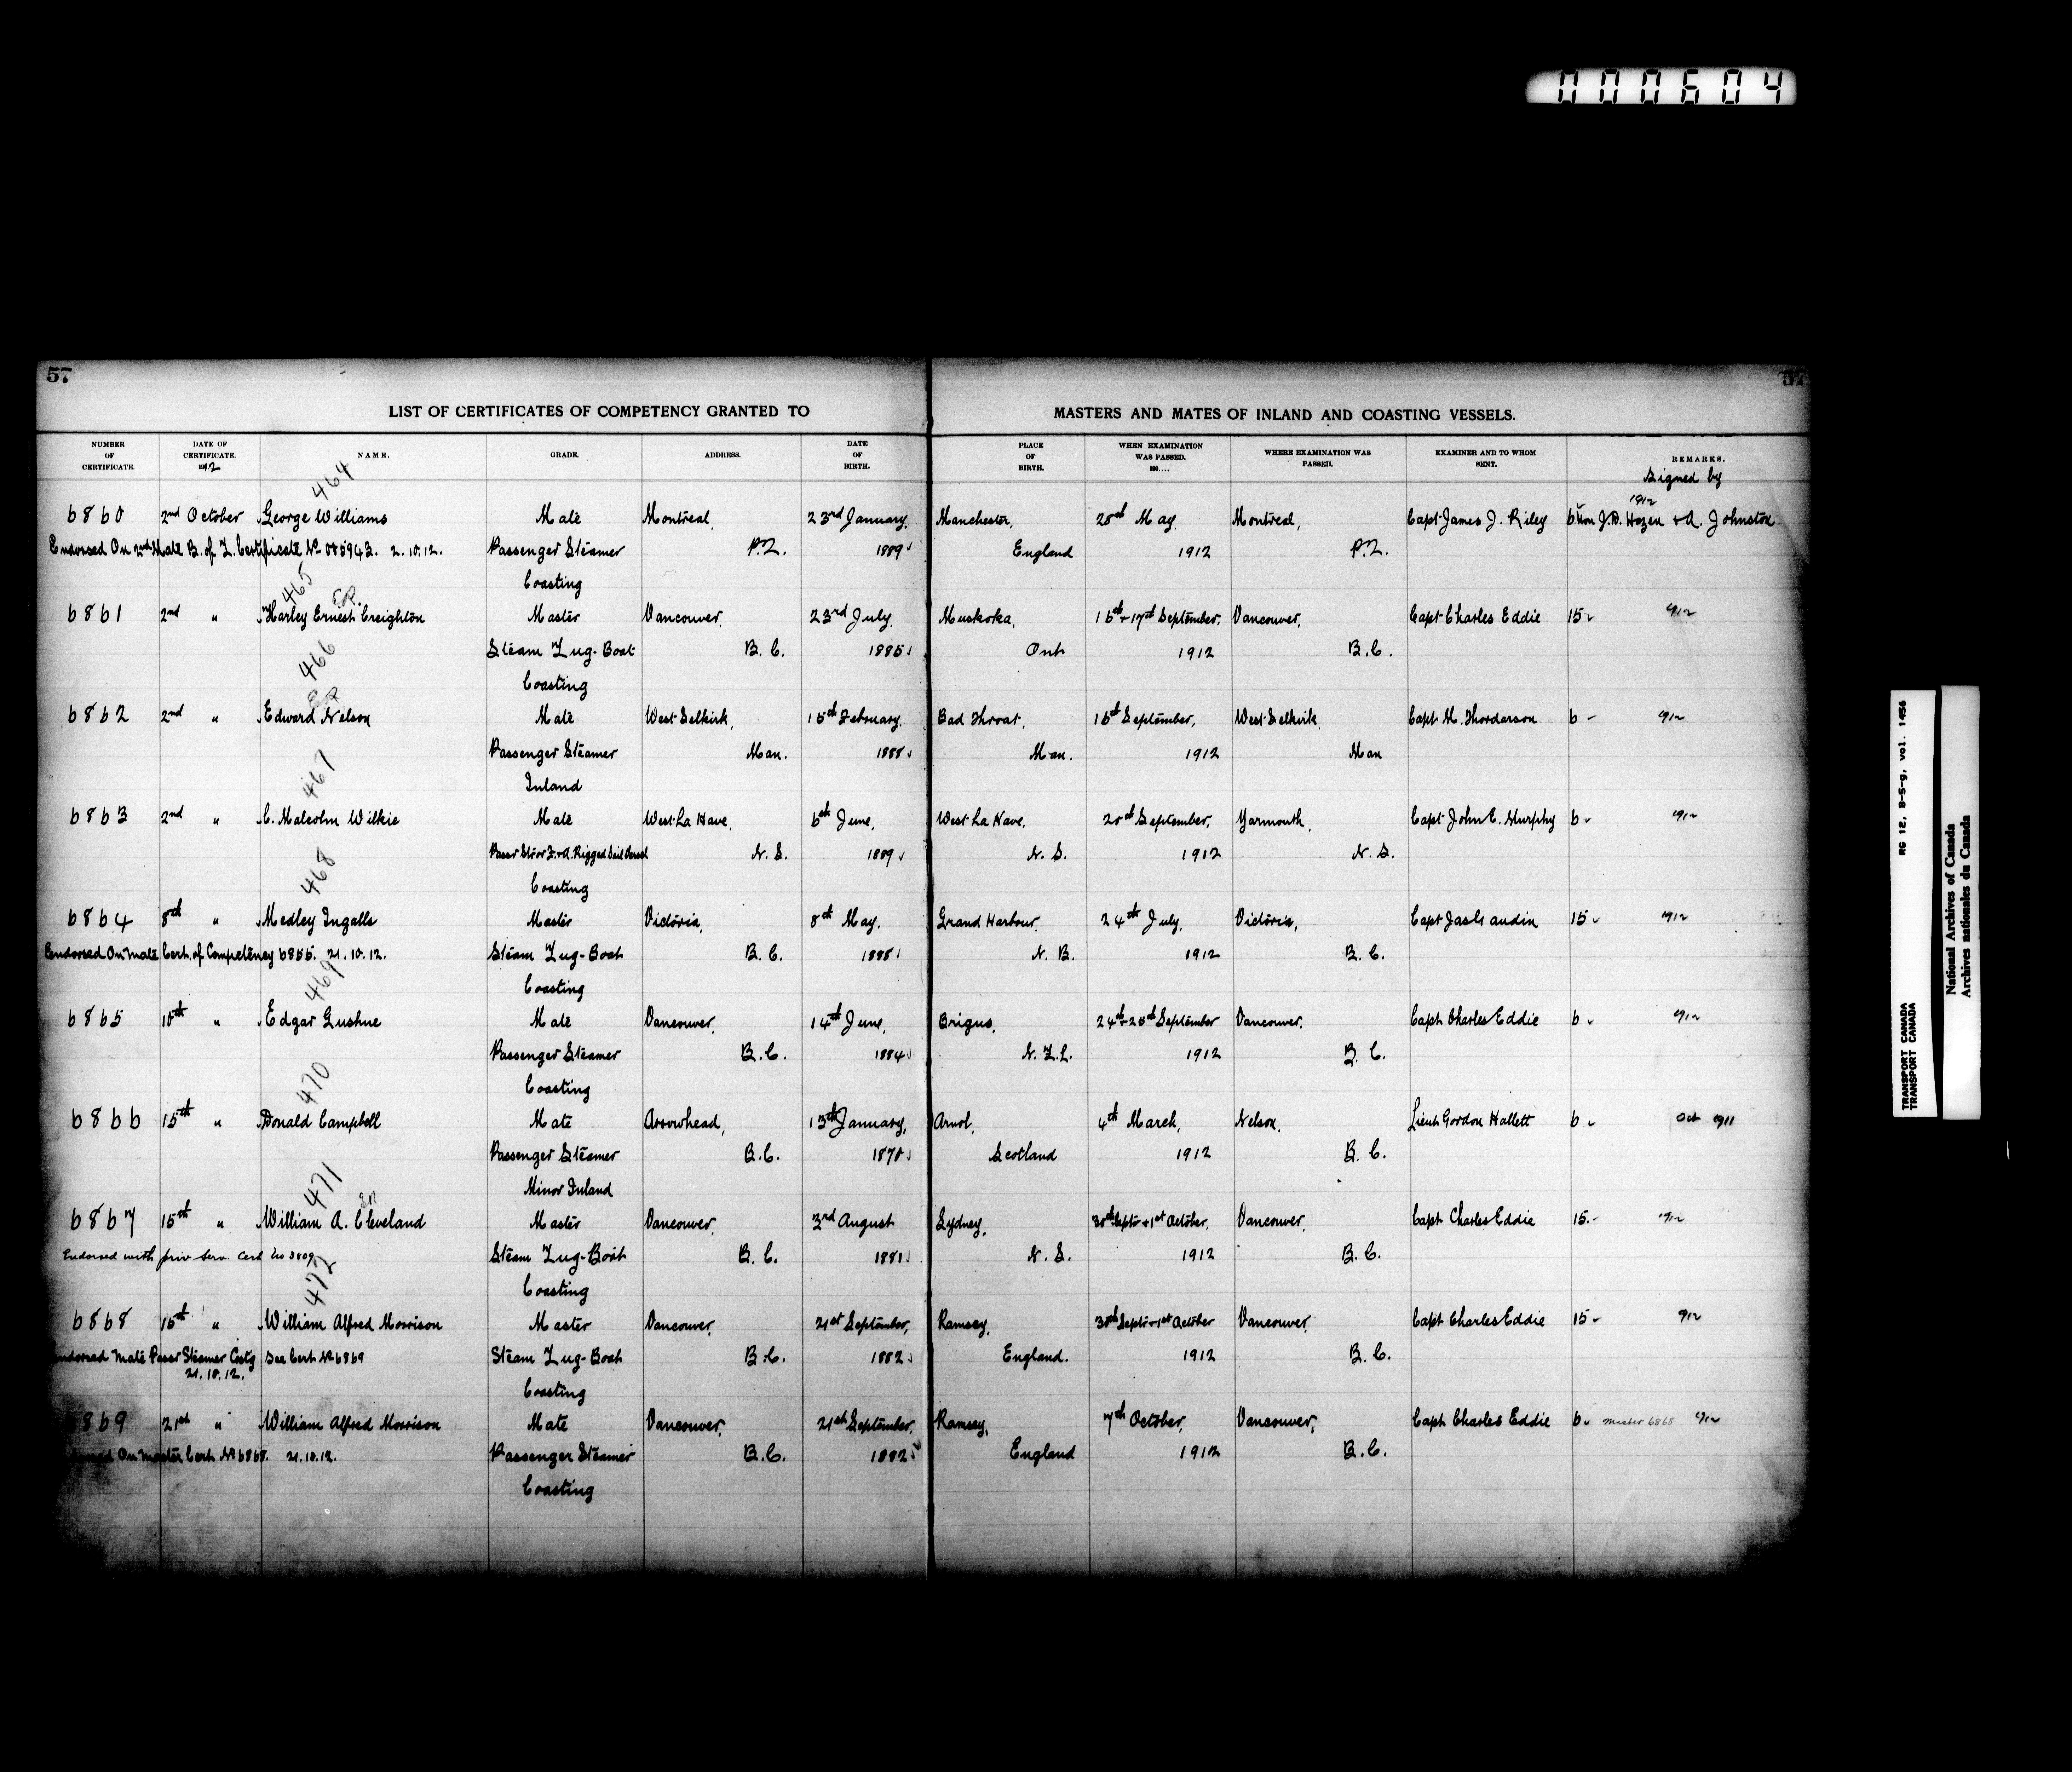 000604
57
57
LIST OF CERTIFICATES OF COMPETENCY GRANTED TO MASTERS AND MATES OF INLAND AND COASTING VESSELS.
NUMBER OF CERTIFICATE. DATE OF CERTIFICATE. 1912 NAME. GRADE. ADDRESS. DATE OF BIRTH. PLACE OF BIRTH. WHEN EXAMINATION WAS PASSED. 190.... WHERE EXAMINATION WAS PASSED. EXAMINER AND TO WHOM SENT. REMARKS.
Signed by
464 1912
6860 2nd October George Williams Mate Montreal, 23rd January, Manchester, 28th May, Montreal, Capt James J. Riley 6 Hon J.D. Hazen & A. Johnston
Endorsed On 2nd Mate B. of T. Certificate No 085943. 2.10.12. Passenger Steamer P.Q. 1889 England 1912 P.Q.
Coasting
465
6861 2nd " Harley Ernest Creighton Master Vancouver, 23rd July, Muskoka, 16th & 17th September, Vancouver, Capt Charles Eddie 15 1912
Steam Tug-Boat B.C. 1885 Ont 1912 B.C.
Coasting
466
6862 2nd " Edward Nelson Mate West Selkirk, 15th February, Bad Throat, 16th September, West Selkirk Capt H. Thordarson 6 1912
Passenger Steamer Man. 1888 Man. 1912 Man
Inland
467
6863 2nd " C. Malcolm Wilkie Mate West La Have, 6th June, West La Have, 20th September, Yarmouth, Capt John E. Murphy 6 1912
Passr Str or F.&A. Rigged Sail Vessel N.S. 1889 N.S. 1912 N.S.
Coasting
468
6864 8th " Medley Ingalls Master Victoria, 8th May, Grand Harbour, 24th July, Victoria, Capt Jas Gaudin 15 1912
Endorsed On Mate Cert. of Competency 6855. 21.10.12. Steam Tug-Boat B.C. N.B. 1912 B.C.
Coasting
469
6865 10th " Edgar Gushue Mate Vancouver, 14th June, Brigus, 24th & 25th September Vancouver, Capt Charles Eddie 6 1912
Passenger Steamer B.C. 1884 N.F.L. 1912 B.C.
Coasting
470
6866 15th " Donald Campbell Mate Arrowhead, 13th January, Arnol, 4th March, Nelson, Lieut Gordon Hallett 6 Oct 1911
Passenger Steamer B.C. 1870 Scotland 1912 B.C.
Minor Inland
471
6867 15th " William A. Cleveland Master Vancouver, 3rd August Sydney, 30th Septr & 1st October, Vancouver, Capt Charles Eddie 15. 1912
Endorsed with priv Serv. Cert No 3809 Steam Tug-Boat B.C. 1881 N.S. 1912 B.C.
Coasting
472
6868 15th " William Alfred Morrison Master Vancouver, 21st September, Ramsey, 30th Septr & 1st October Vancouver, Capt Charles Eddie 15 1912
Endorsed Mate Passr Steamer Coastg See Cert No 6869 Steam Tug-Boat B.C. 1882 England. 1912 B.C.
21.10.12. Coasting
6869 21st " William Alfred Morrison Mate Vancouver, 21st September, Ramsey, 7th October, Vancouver, Capt Charles Eddie 6 Master 6868 1912
On Master Cert No 6868. 21.10.12. Passenger Steamer B.C. 1882 England 1912 B.C.
Coasting
RG 12, B-5-g, vol. 1456
TRANSPORT CANADA
TRANSPORT CANADA
National Archives of Canada
Archives nationales du Canada